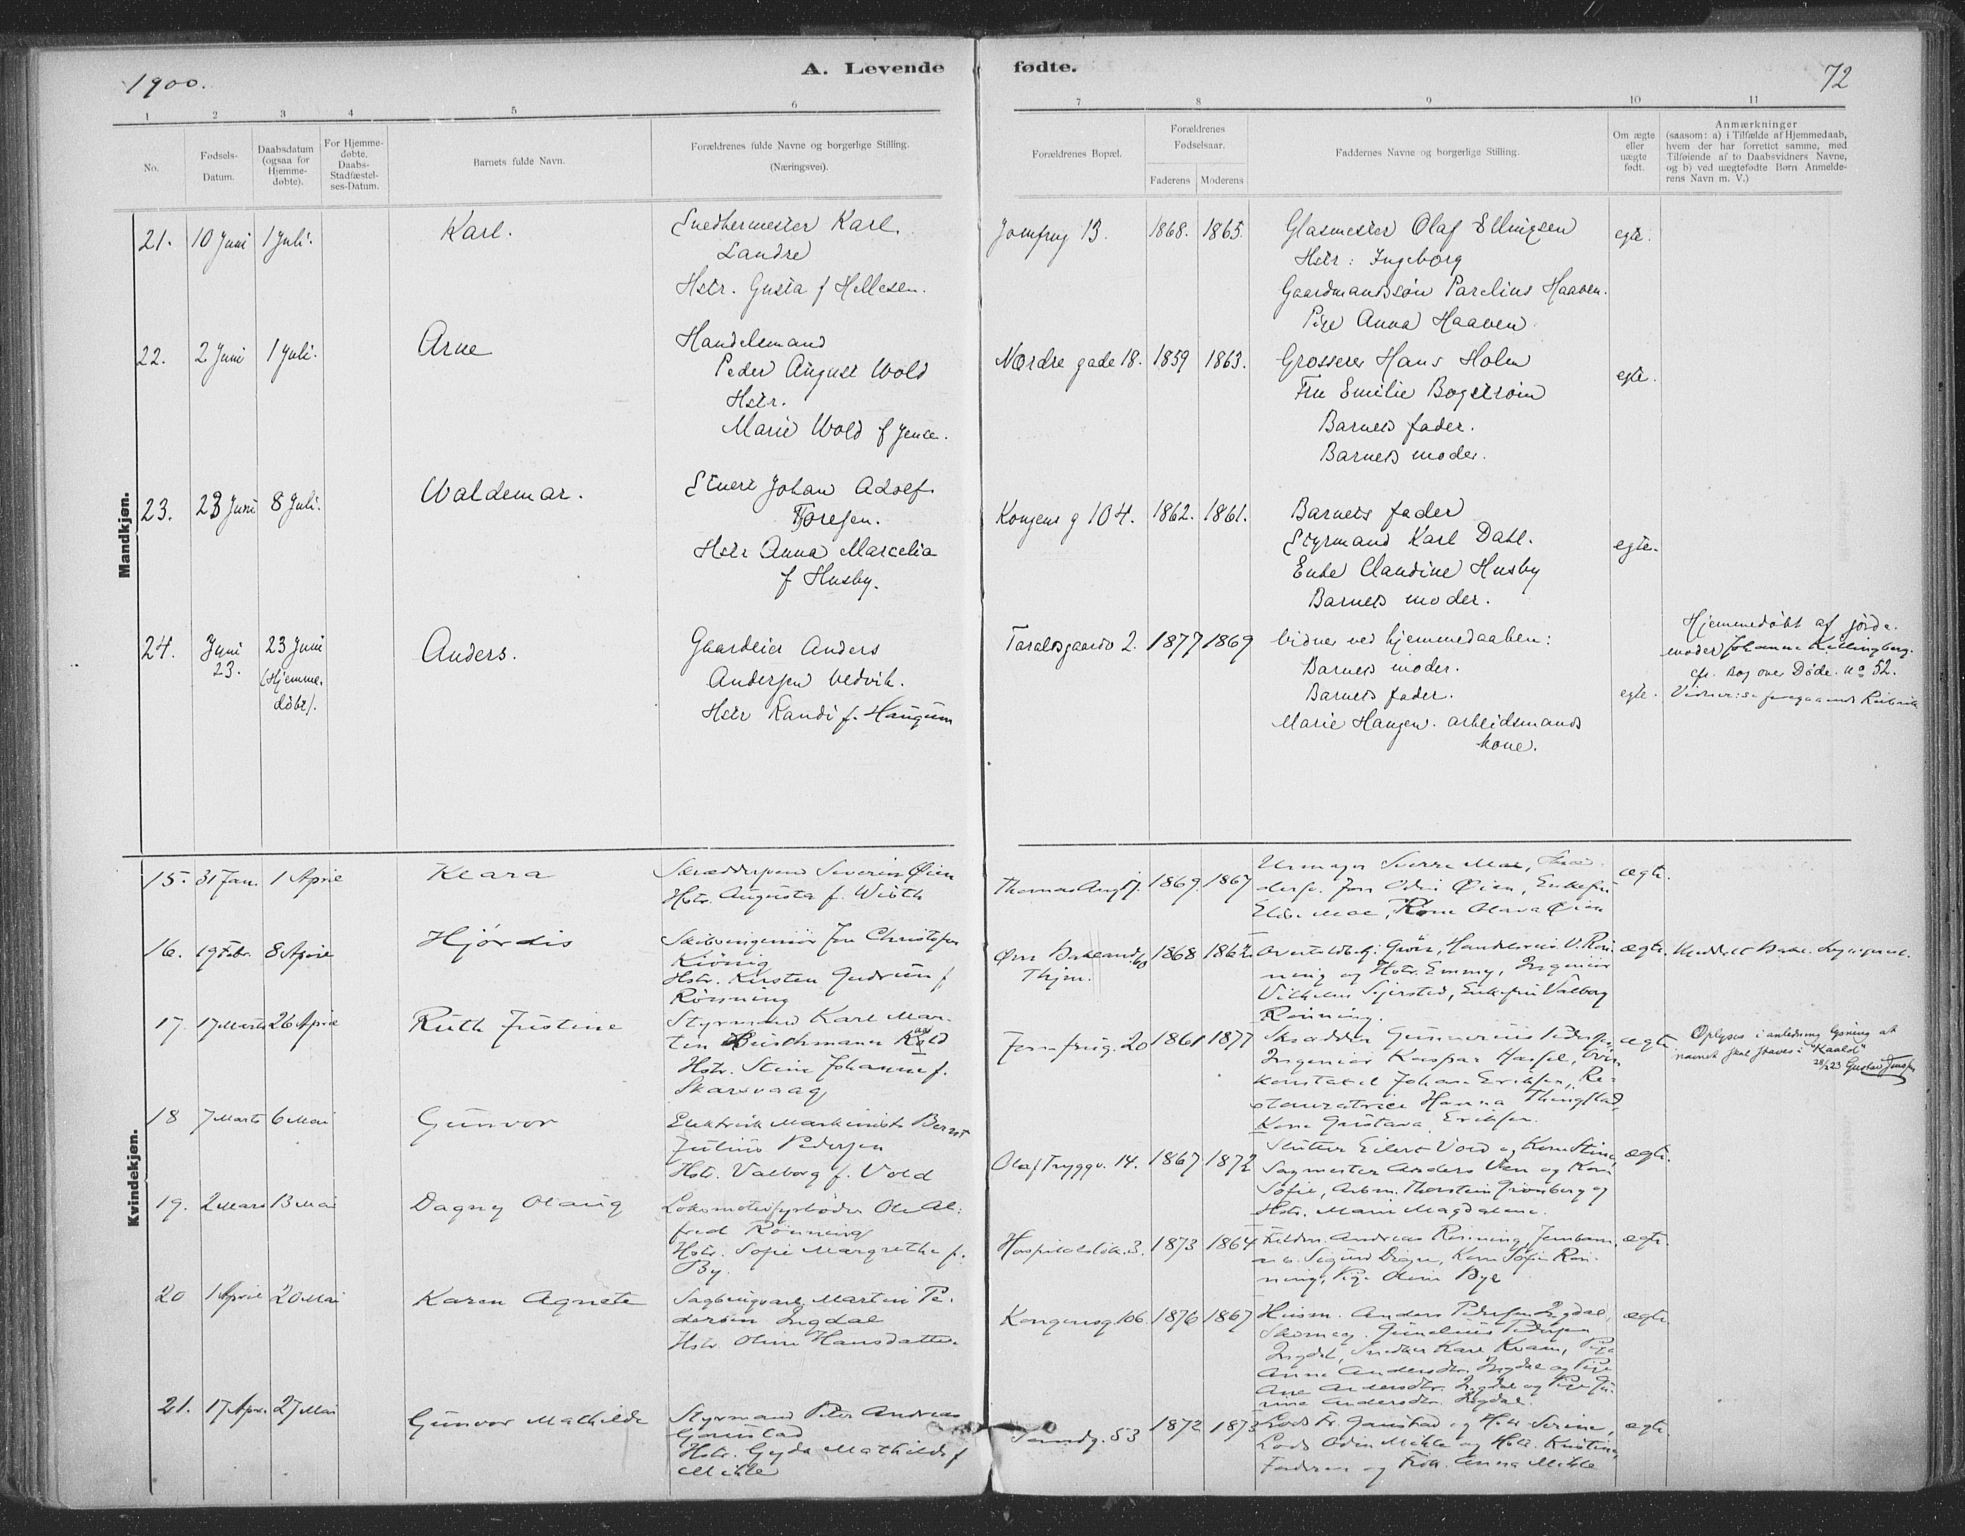 1900.
A. Levende fødte.
72
1 2 3 4 5 6 7 8 9 10 11
No.
Fødsels-
Datum.
Daabsdatum
(ogsaa for
Hjemme-
døbte).
For Hjemme-
døbte,
Daabs-
Stadfæstel-
ses-Datum.
Barnets fulde Navn.
Forældrenes fulde Navne og borgerlige Stilling.
(Næringsvei).
Forældrenes Bopæl.
Forældrenes
Fødselsaar.
Faderens Moderens
Faddernes Navne og borgerlige Stilling.
Om ægte
eller
uægte
født.
Anmærkninger
(saasom: a) i Tilfælde af Hjemmedaab,
hvem der har forrettet samme, med
Tilføiende af to Daabsvidners Navne,
og b) ved uægtefødte Børn Anmelde-
rens Navn m. V.)
Mandkjøn.
21. 10 Juni 1 Juli. Karl.
Snedkermester Karl
Landre
Hstr. Gusta f Hellesen.
Jomfrug 13. 1868. 1865.
Glasmester Olaf Ellingsen
Hstr: Ingeborg
Gaardmandssøn Parelius Haaven.
Pige Anna Haaven.
egte.
22. 2 Juni 1 Juli. Arne
Handelsmand
Peder August Wold
Hstr.
Marie Wold f Jenee.
Nordre gade 18. 1859 1863.
Grosserer Hans Holm
Fru Emilie Bogstrøm
Barnets fader.
Barnets moder.
egte.
23. 23 Juni 8 Juli. Waldemar.
Stuert Johan Adolf
Thoresen.
Hstr Anna Marcelia
f Husby.
Kongens g 104. 1862. 1861.
Barnets fader
Styrmand Karl Dahl.
Enke Claudine Husby
Barnets moder.
egte.
24. Juni
23.
23 Juni
(Hjemme-
døbt).
Anders.
Gaardeier Anders
Andersen Vedvik.
Hstr Randi f. Haugum
Taraldsgaardv 2. 1877 1869
Vidner ved hjemmedaaben:
Barnets moder.
Barnets fader.
Marie Haugen. arbeidsmands
kone.
egte.
Hjemmedøbt af jorde-
moder Johanne Kellingberg.
cfr. Bog over Døde. no 52.
Vidner: se foregaaende Rubrik
Kvindekjøn.
15. 31 Jan. 1 April Klara
Skræddersvend Severin Øien
Hstr. Augusta f. Wisth
Thomas Angg. 1869. 1867
Urmager Sverre Moe,
Jon Odin Øien, Enkefru
Elis. Moe, Kone Olava Øien
ægte.
16. 19 Febr. 8 April Hjørdis
Skibsingeniør Jon Christofer
Kiønig
Hstr. Kirsten Gudrun f.
Rønning
Thjm. 1868
Overtoldbetj. Grøn, Handlerens V. Røn-
ning og Hstr. Emmy, Ingeniør
Vilhelm Sejersted, Enkefru Valborg
Rønning.
ægte.
17. 17 Marts 26 April Ruth Justine
Styrmand Karl Mar-
tin Buschmann Kald
Hstr. Stine Johanne f.
Skarsvaag
Jomfrug. 20 1861 1877
Skrædder Gunnerius Pedersen
Ingeniør Kaspar Hassel,
konstabel Johan Eriksen, Re-
stauratrice Hanna Thingstad,
Kone Gustava Eriksen.
ægte
Oplyses i anledning lysning at
navnet skal staves: "Kaald"
28/2 23 Gustav Jensen
18 7 Marts 6 Mai Gunvor
Elektrisk Maskinist Bernt
Julius Pedersen
Hstr. Valborg f. Vold
Olaf Tryggv. 14. 1867 1872
Slutter Eilert Vold og Kone Stine,
Sagmester Anders Ven og Kone
Sofie, Arbm. Thorstein Grønberg og
Hstr. Marie Magdalene.
ægte.
19. 2 Mars 13 Mai Dagny Olaug
Lokomotivfyrbøder Ole Al-
fred Rønning
Hstr. Sofie Margrethe f.
By.
Hospitalsløk. 3. 1873 1864
Feldm. Andreas Rønning, Jernban-
arb. Sigurd Digre, Kone Sofie Røn-
ning, Pige Oline Bye
ægte.
20 1 April 20 Mai Karen Agnete
Sagbrugsarb. Martin Pe-
dersen Ingdal
Hstr Oline Hansdatter
Kongensg. 106. 1876 1867
Husm. Anders Pedersen Ingdal,
Skomag. Gunelius Pedersen
Ingdal, Snedker Karl Kvam, Pige
Anne Andersdtr. Ingdal og Pige
Ane Andersdtr. Ingdal og Pige Gu-
rine Andersdtr. Ingdal.
ægte.
21. 17 Apr. 27 Mai Gunvor Mathilde
Styrmand Peter Andreas
Gjønstad
Hstr. Gyda Mathilde f
Mihle
Sandg. 53 1872 1873
Lods Fr. Gjønstad og Hstr. Serine,
Lods Odin Mihle og Hstr. Kristine,
Faderen og Frk. Anna Mihle
ægte.